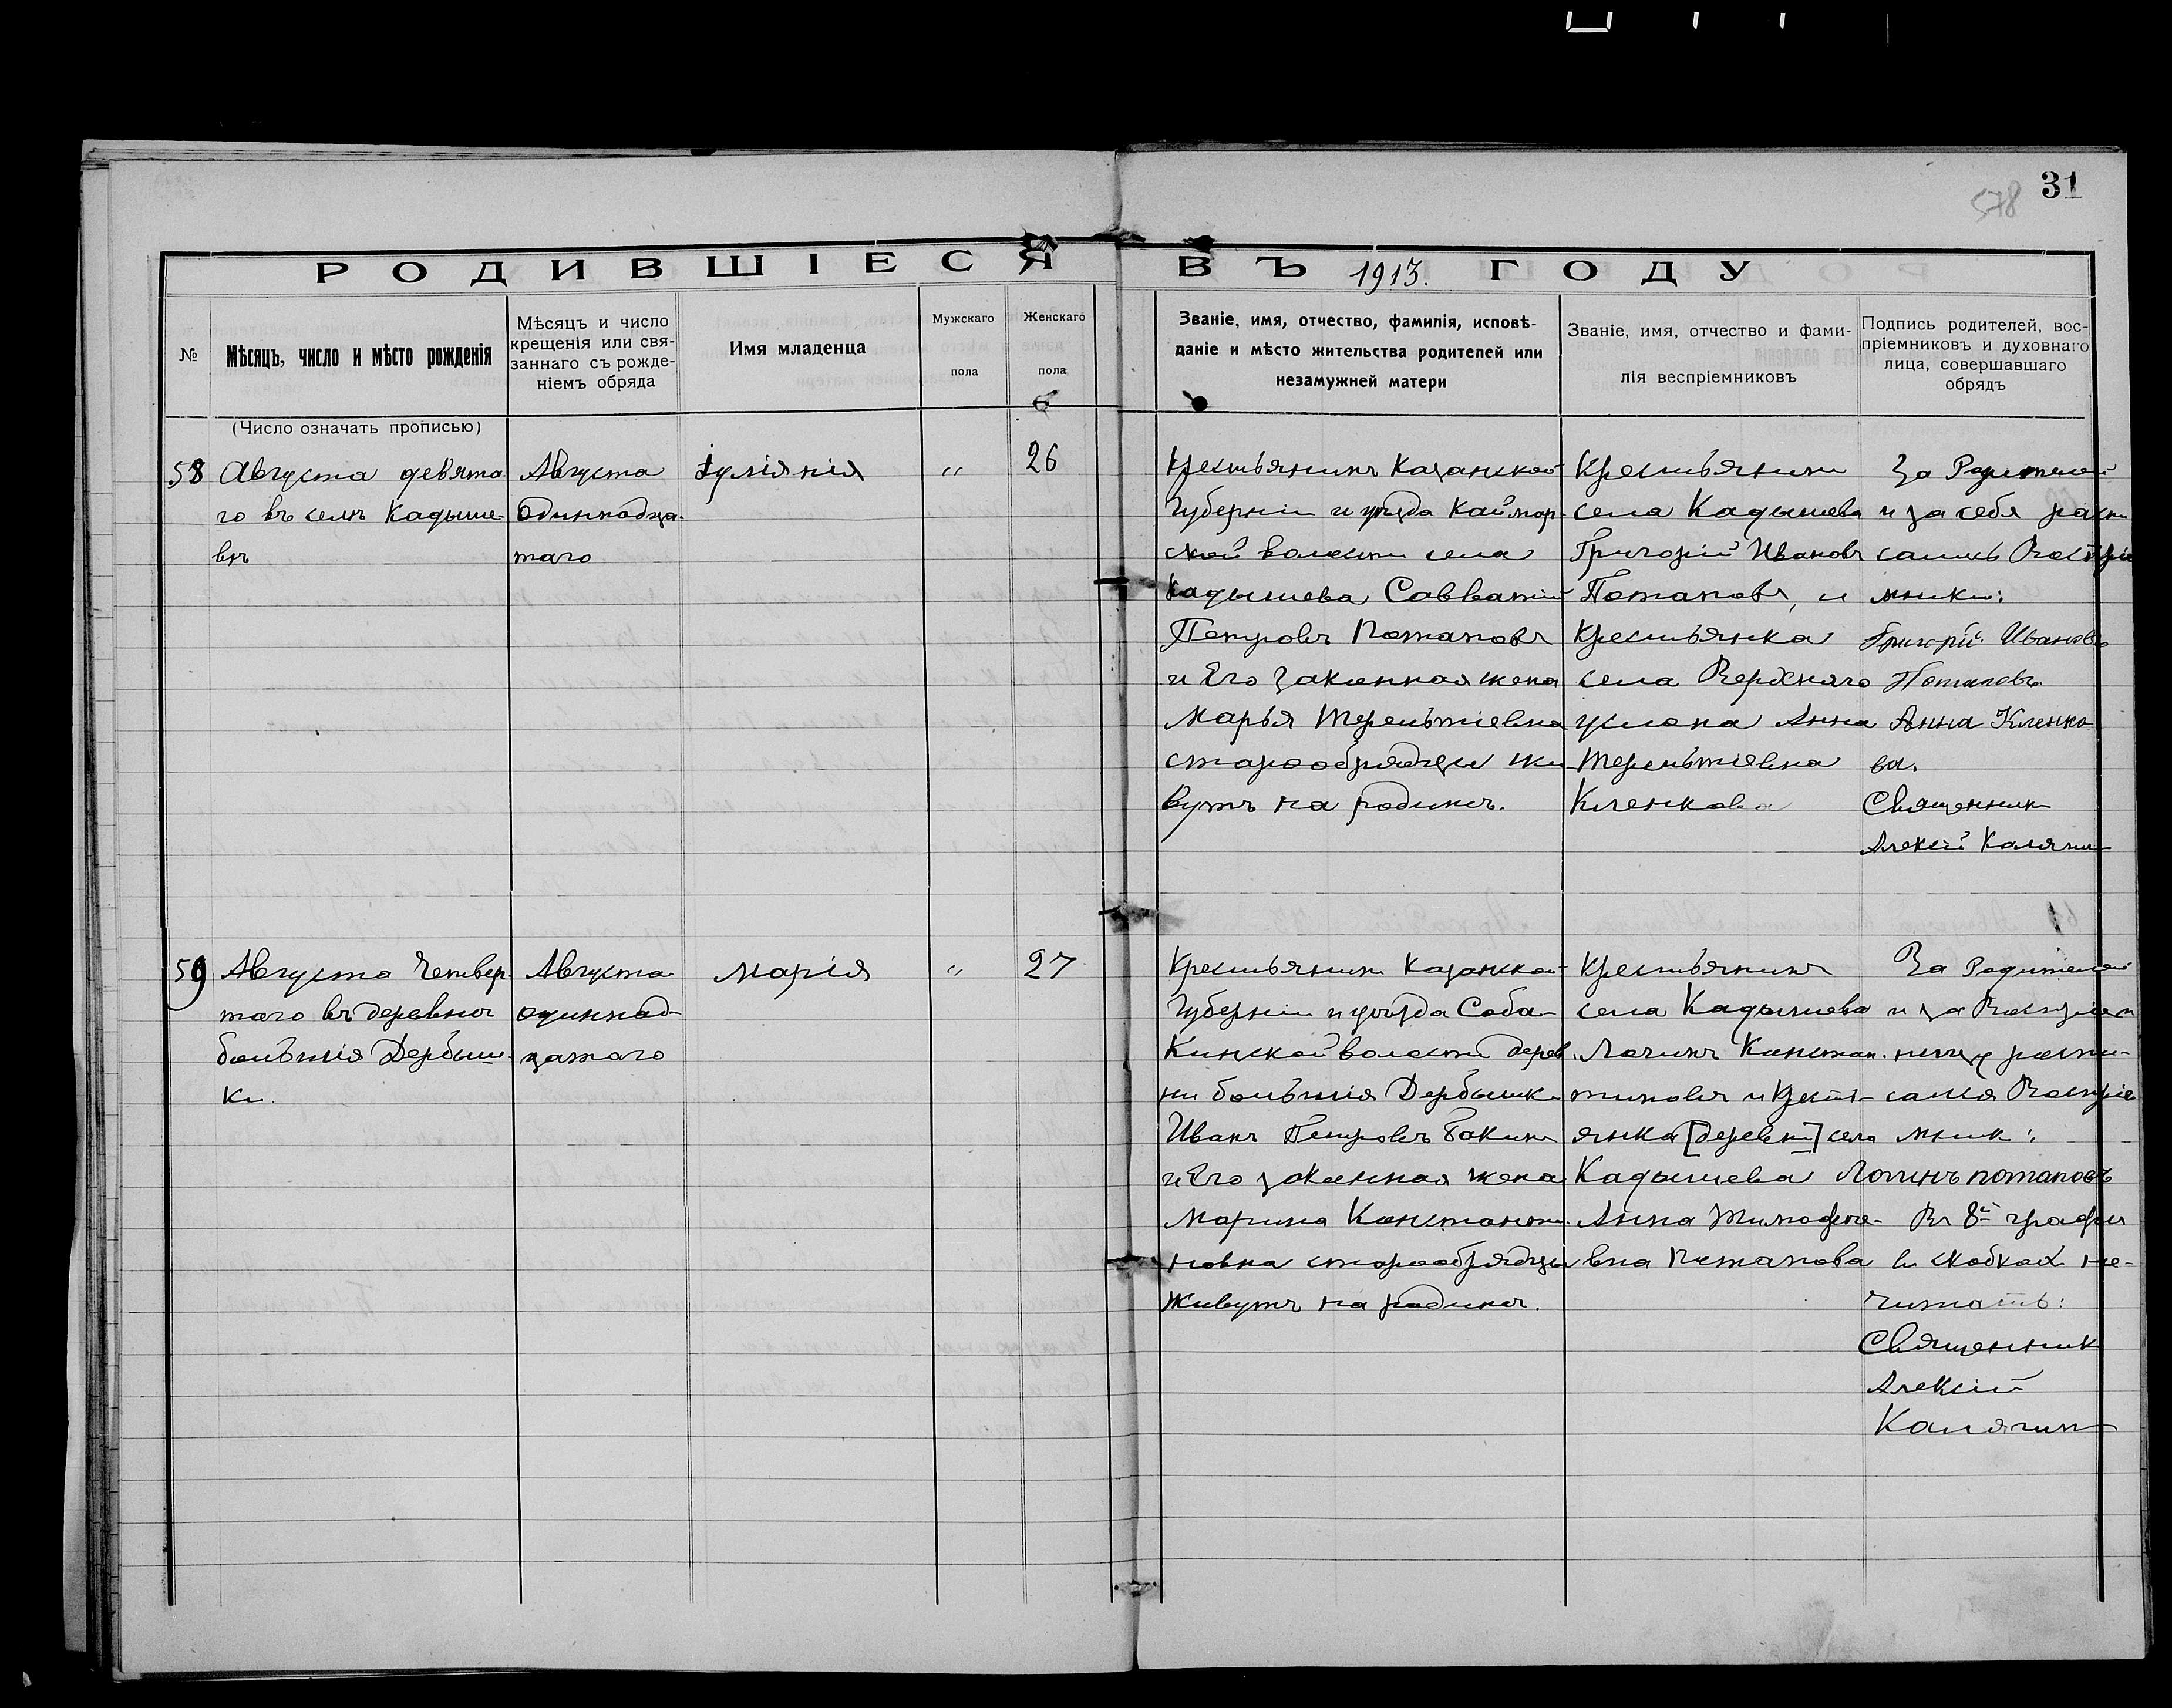 31
578
РОДИВШІЕСЯ ВЪ 1913. ГОДУ
№
Мѣсяцъ, число и мѣсто рожденія
Мѣсяцъ и число
крещенія или свя-
заннаго съ рожде-
ніемъ обряда
Имя младенца
Мужскаго
пола
Женскаго
пола
Званіе, имя, отчество, фамилія, исповѣ-
даніе и мѣсто жительства родителей или
незамужней матери
Званіе, имя, отчество и фами-
лія веспріемниковъ
Подпись родителей, вос-
пріемниковъ и духовнаго
лица, совершавшаго
обрядъ
(Число означать прописью)
58
Августа девята
го въ селѣ Кадыше-
вѣ
Августа
Одиннадца-
таго
Іуліянія
"
26
Крестьянинъ Казанской
Губерніи и уѣзда Каймор-
ской волости села
Кадышева Савватій
Петровъ Потаповъ
и Его законная жена
Марья Терентьевна
старообрядцы жи-
вутъ на родинѣ.
Крестьянинъ
села Кадышева
Григорій Ивановъ
Потаповъ, и
Крестьянка
села Верхняго
Услона Анна
Терентьевна
Кленкова
За Родителей
и за себя
Григорій Ивановъ
Потаповъ.
Анна Кленко-
ва.
Священникъ
Алексій Калягинъ
59
Августа Четвер-
таго въ деревнѣ
большія Дербыш-
ки.
Августа
одиннад-
цатаго
Марія
"
27
Крестьянинъ Казанской
Губерніи и уѣзда Соба-
Кинской волости дерев
ни большія Дербышк
Иванъ Петровъ
и Его законная жена
Марина Константи-
новна старообрядцы
живутъ на родинѣ.
Крестьянинъ
села Кадышева
Логинъ Констан-
тиновъ и Крестѣ-
янка [деревни] села
Кадышева
Анна Тимофѣе-
вна Потапова
За Родителей
Логинъ потаповъ
Въ 8й графѣ
въ скобкахъ не-
читать:
Священникъ
Алексій
Калягинъ